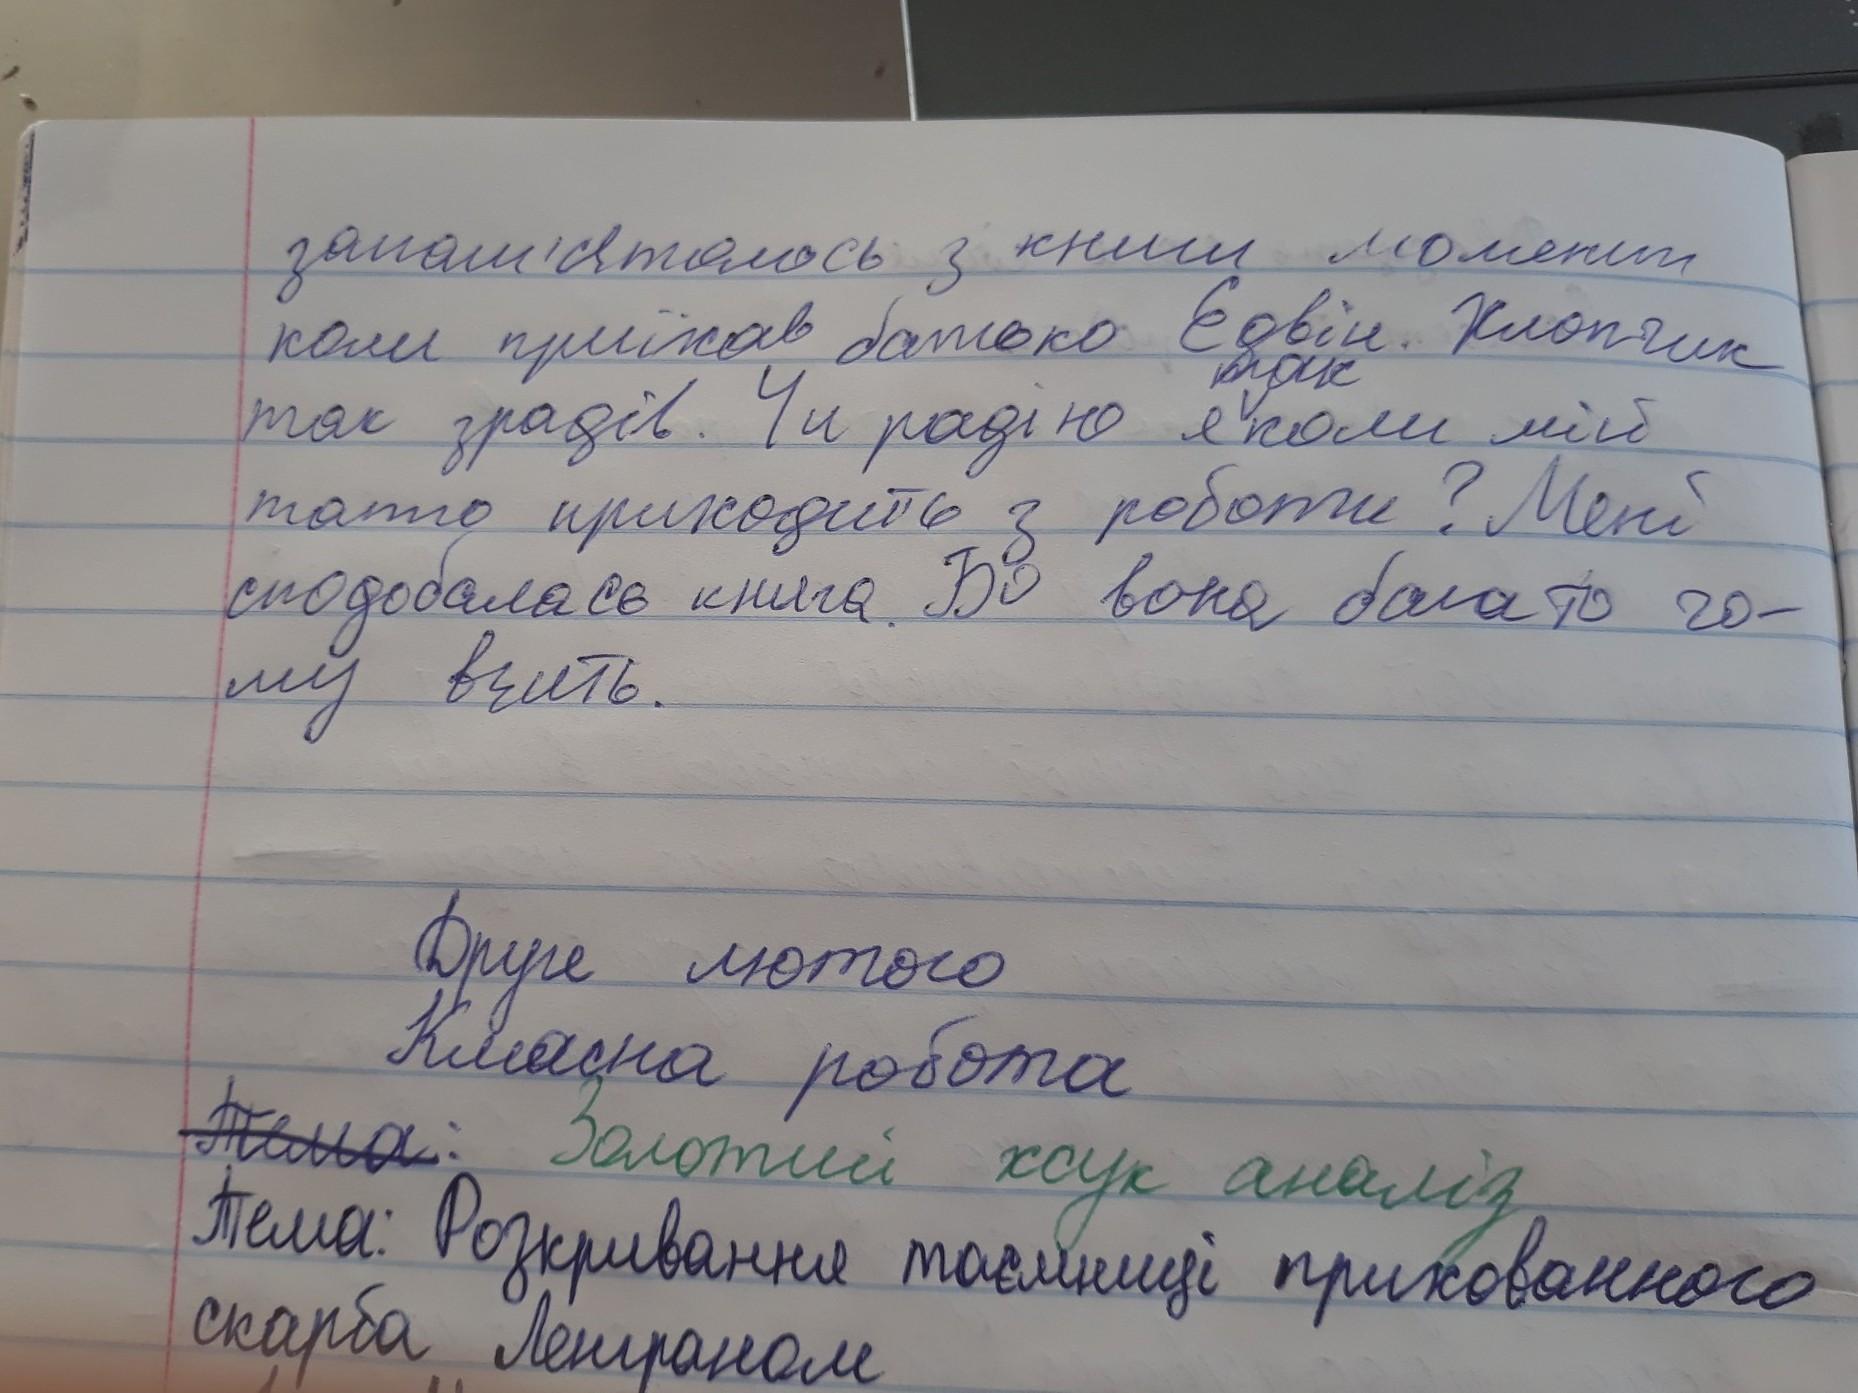 запам'яталось з книги момент
коли приїхав батько Єдвін. Хлопчик
так зрадів. Чи радію я так коли мій
тато приходить з роботи? Мені
сподобалась книга. Бо вона багато чо-
му вчить.
Друге лютого
Класна робота
Тема: Золотий жук аналіз
Тема: Розкривання таємниці прихованного
скарба Леграном